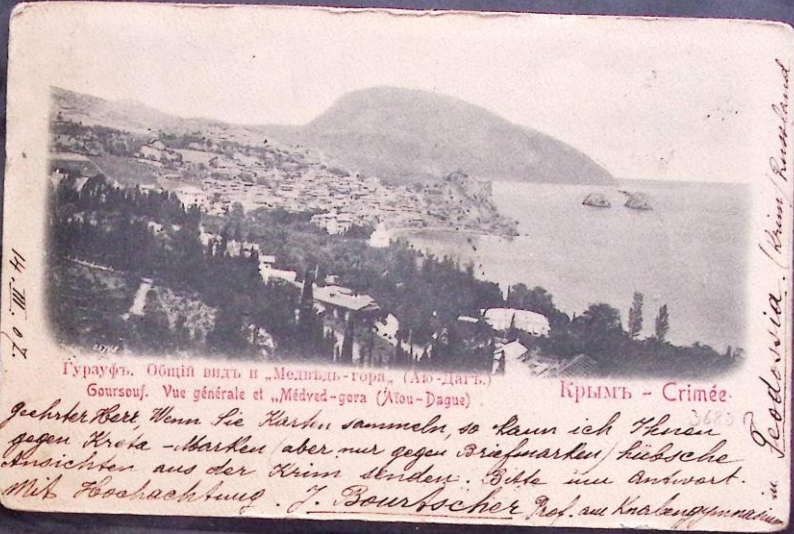 14. III. 07.
Гурзуфъ. Общій видъ и „Медвѣдь-гора„ (Аю-Дагъ.)
Goursouf. Vue générale et „Médved-gora (Aïou-Dague)
Крымъ - Crimée.
3680
geehrter Herr, Wenn Sie Karten sammeln, so kann ich Ihnen
gegen Kreta-Marken (aber nur gegen Briefmarken) hübsche
Ansichten aus der Krim senden. Bitte um Antwort.
Mit Hochachtung. J. Bourtscher Prof. am Knabengymnasium
in Feodossia. (Krim/Russland